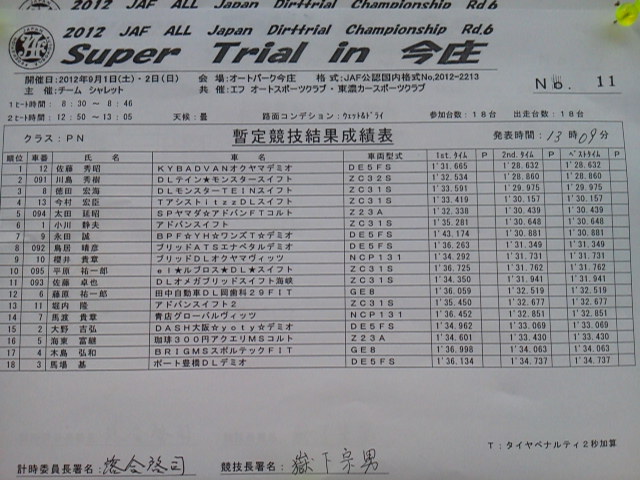 2012 JAF ALL Japan Dirttrial Championship Rd.6
2012 JAF ALL Japan Dirttrial Championship Rd.6
Super Trial in 今庄
開催日:2012年9月1日(土)・2日(日) 会 場:オートパーク今庄 格式:JAF公認国内格式No,2012-2213
主 催:チーム シャレット 共 催:エフ オートスポーツクラブ・東濃カースポーツクラブ
No. 11
1ヒート時間: 8:30 ~ 8:46
2ヒート時間: 12:50 ~ 13:05 天候:曇 路面コンデション:ウェット&ドライ 参加台数:18台 出走台数:18台
クラス:PN 暫定競技結果成績表 発表時間:13時09分
順位 車番 氏 名 車 名 車両型式 1st.タイム P 2nd.タイム P ベストタイム P
1 12 佐藤 秀昭 KYBADVANオクヤマデミオ DE5FS 1'31.665 1'28.632 1'28.632
2 091 川島 秀樹 DLテイン★モンスタースイフト ZC32S 1'32.534 1'28.860 1'28.860
3 8 徳田 宏海 DLモンスターTEINスイフト ZC31S 1'31.591 1'29.975 1'29.975
4 13 今村 宏臣 TアシストitzzDLスイフト ZC31S 1'33.419 1'30.157 1'30.157
5 094 太田 延昭 SPヤマダ☆アドバンFTコルト Z23A 1'32.338 1'30.439 1'30.439
6 1 小川 静夫 アドバンスイフト ZC31S 1'35.281 1'30.648 1'30.648
7 9 永田 誠 BPF☆YH☆ワンズT☆デミオ DE5FS 1'43.174 1'30.881 1'30.881
8 092 鳥居 晴彦 ブリッドATSエナペタルデミオ DE5FS 1'36.263 1'31.349 1'31.349
9 10 櫻井 貴章 ブリッドDLオクヤマヴィッツ NCP131 1'34.292 1'31.731 1'31.731
10 095 平原 祐一郎 el★ルブロス★DL★スイフト ZC31S 1'36.725 1'31.762 1'31.762
11 093 佐藤 卓也 DLオメガブリッドスイフト海峡 ZC31S 1'34.350 1'31.941 1'31.941
12 6 藤原 祐一郎 田中自動車DL同歯科29FIT GE8 1'36.059 1'32.519 1'32.519
13 11 堀内 隆 アドバンスイフト2 ZC31S 1'35.450 1'32.677 1'32.677
14 7 馬渡 貴章 青店グローバルヴィッツ NCP131 1'36.452 1'32.851 1'32.851
15 2 大野 吉弘 DASH大阪☆yoty☆デミオ DE5FS 1'34.962 1'33.069 1'33.069
16 5 海東 富継 珈琲300円アクエリMSコルト Z23A 1'34.601 1'33.430 1'33.430
17 4 木島 弘和 BRIGMSスポルテックFIT GE8 1'36.998 1'34.063 1'34.063
18 3 馬場 基 ボート豊橋DLデミオ DE5FS 1'36.134 1'34.737 1'34.737
T:タイヤペナルティ2秒加算
計時委員長署名: 落合啓司 競技長署名: 嶽下宗男